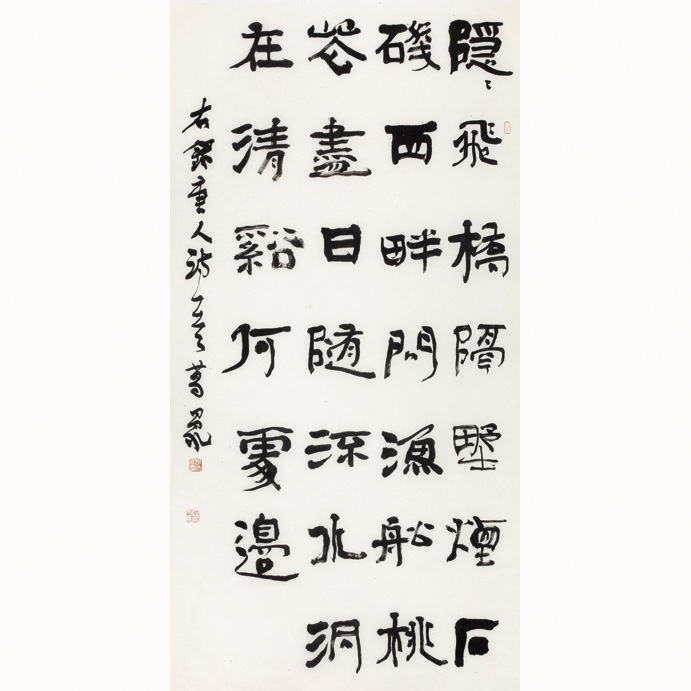 隱〻飛橋隔野煙石
磯西畔問漁船桃
花盡日隨流水洞
在清谿何處邊
右錄唐人詩一首葛